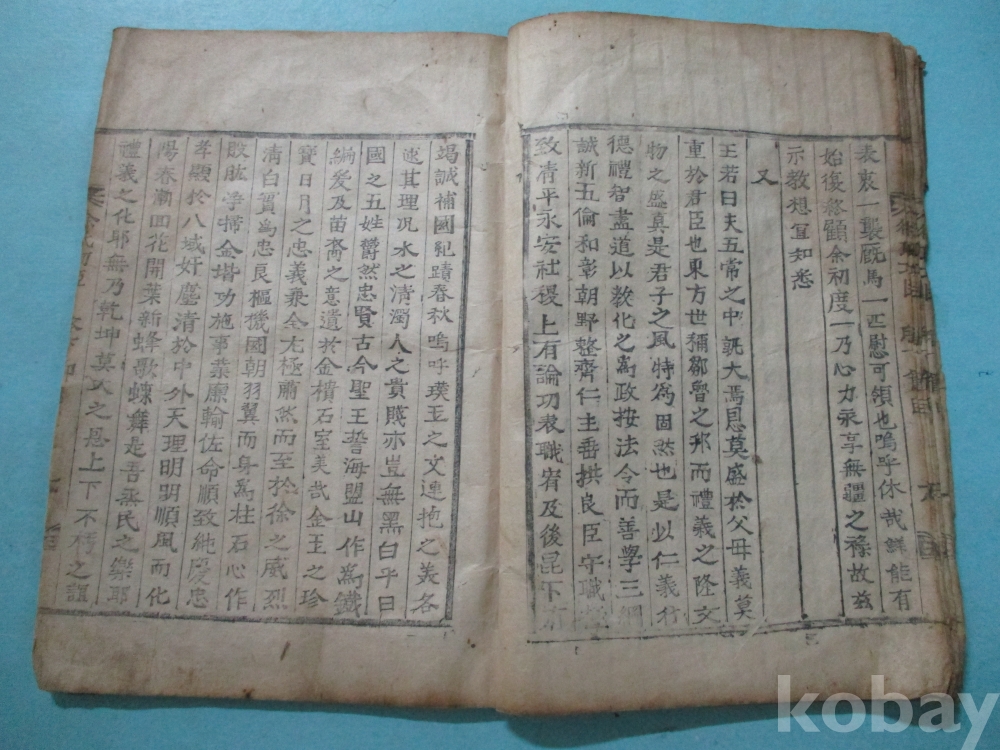 表裏一襲廐馬一匹慰可領也嗚乎休哉鮮能有
始復終顧余初度一乃心力永享無疆之祿故玆
示教想宜知悉
又
王若曰夫五常之中孰大焉恩莫盛於父母義莫
重於君臣也東方世稱鄒魯之邦而禮義之隆文
物之盛真是君子之風特爲固然也是以仁義行
德禮智盡道以教化之爲政按法令而善學三綱
誠新五倫和彰朝野整齊仁主垂拱良臣守職
致清平永安社稷上有論功表職宥及後昆下
竭誠補國紀蹟春秋嗚呼璞玉之文連抱之美各
逑其理况水之清濁人之貴賤亦豈無黑白乎曰
國之五姓欝然忠賢古今聖王誓海盟山作爲鐵
編爰及苗裔之意遺於金樻石室美哉金玉之珍
寶日月之忠義兼全尤極肅然而至於徐之威烈
清白賀爲忠良樞機國朝羽翼而身爲柱石心作
股肱淨掃金堦功施事業廟輸佐命順致純慶忠
孝顯於八域奸塵清於中外天理明明順風而化
陽春潮回花開葉新蜂歌蝶舞是吾烝民之樂耶
禮義之化耶無乃乾坤莫大之恩上下不朽之誼
kobay